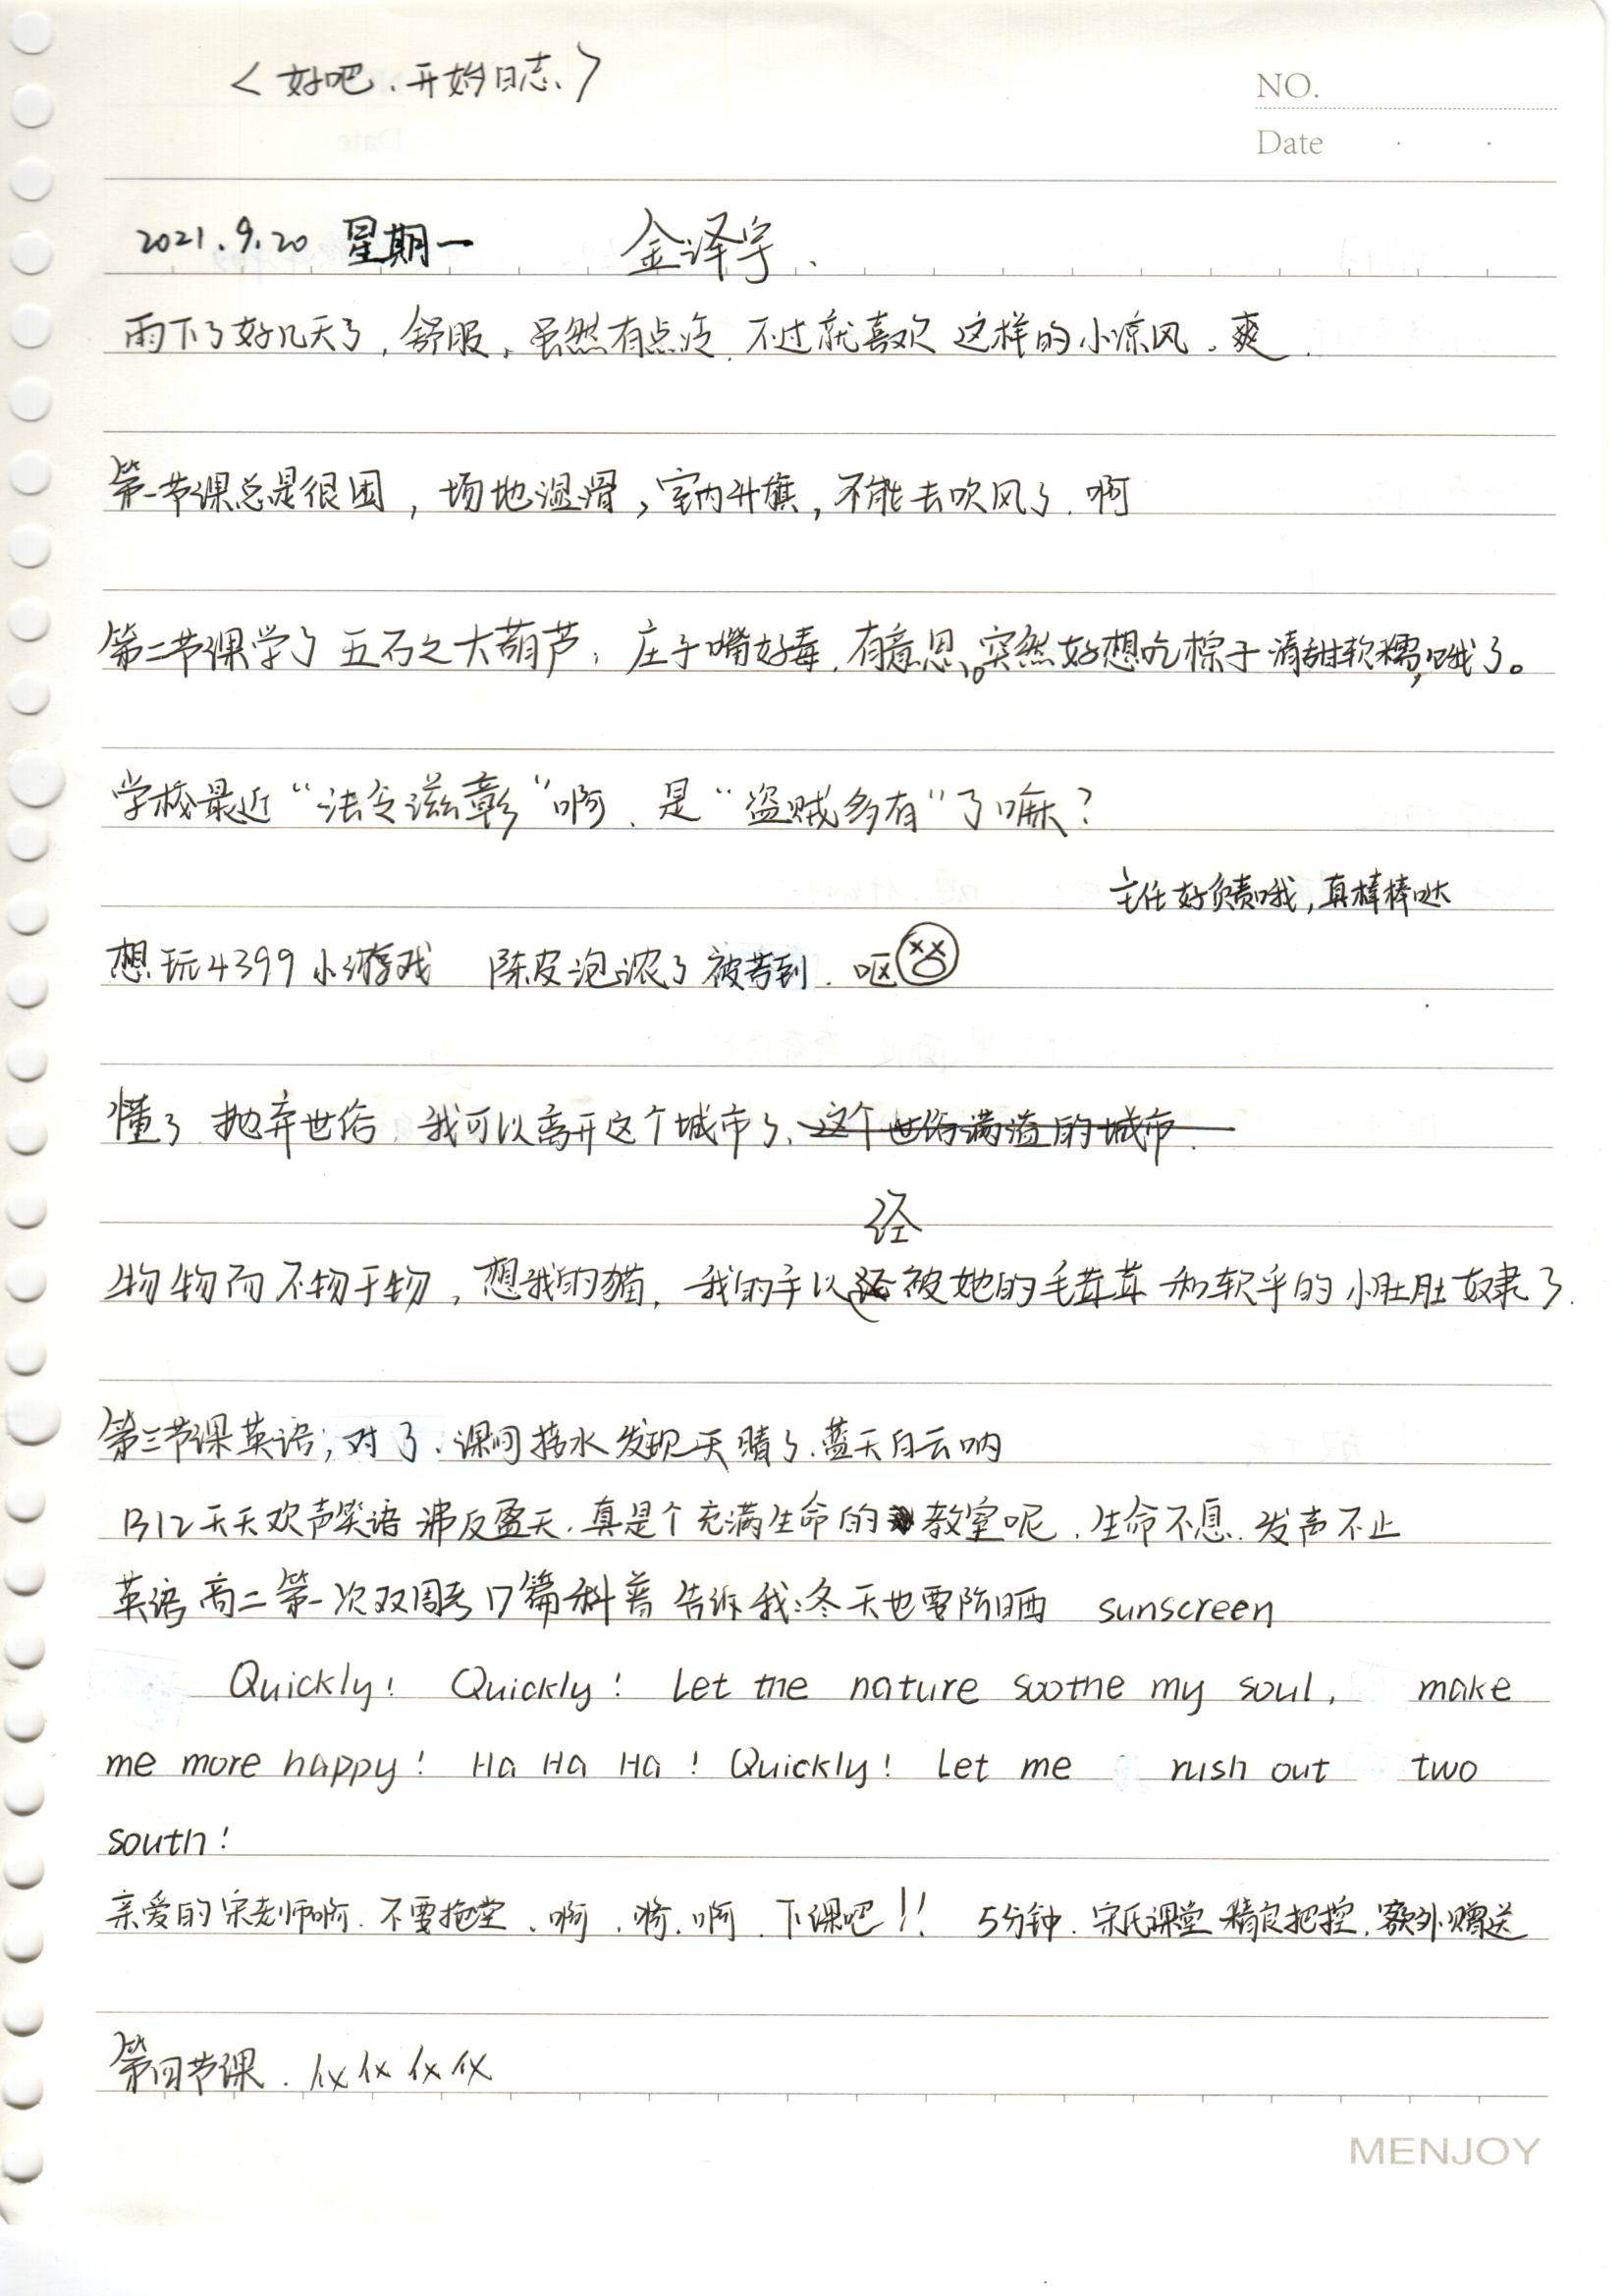 <好吧、开始日志、>
NO.
Date
2021.9.20 星期一 金泽宇、
雨下了好几天了,舒服、虽然有点冷、不过就喜欢这样的小凉风、爽、
第一节课总是很困,场地湿滑,室内升旗,不能去吹风了、啊
第二节课学了五石之大葫芦、庄子嘴好毒、有意思。突然好想吃棕子清甜软糯,哦了。
学校最近“法令滋彰”啊、是“盗贼多有”了嘛?
主任好负责哦,真棒棒哒
想玩4399小游戏 陈皮泡浓了被苦到、呕
懂了 抛弃世俗、我可以离开这个城市了、这个世俗满溢的城市、
经
物物而不物于物,想我的猫,我的手以被她的毛茸茸和软乎的小肚肚奴隶了.
第三节课英语;对了、课间接水发现天晴了、蓝天白云呐
B12天天欢声笑语沸反盈天、真是个充满生命的教室呢、生命不息、发声不止
英语高二第一次双周考D篇科普告诉我:冬天也要防晒 sunscreen
Quickly! Quickly! Let the nature soothe my soul, make
me more happy! Ha Ha Ha! Quickly! Let me rush out two
south!
亲爱的宋老师啊、不要拖堂、啊、啊、下课吧!! 5分钟、宋氏课堂精良把控,额外赠送
第四节课、仪仪仪仪
MENJOY